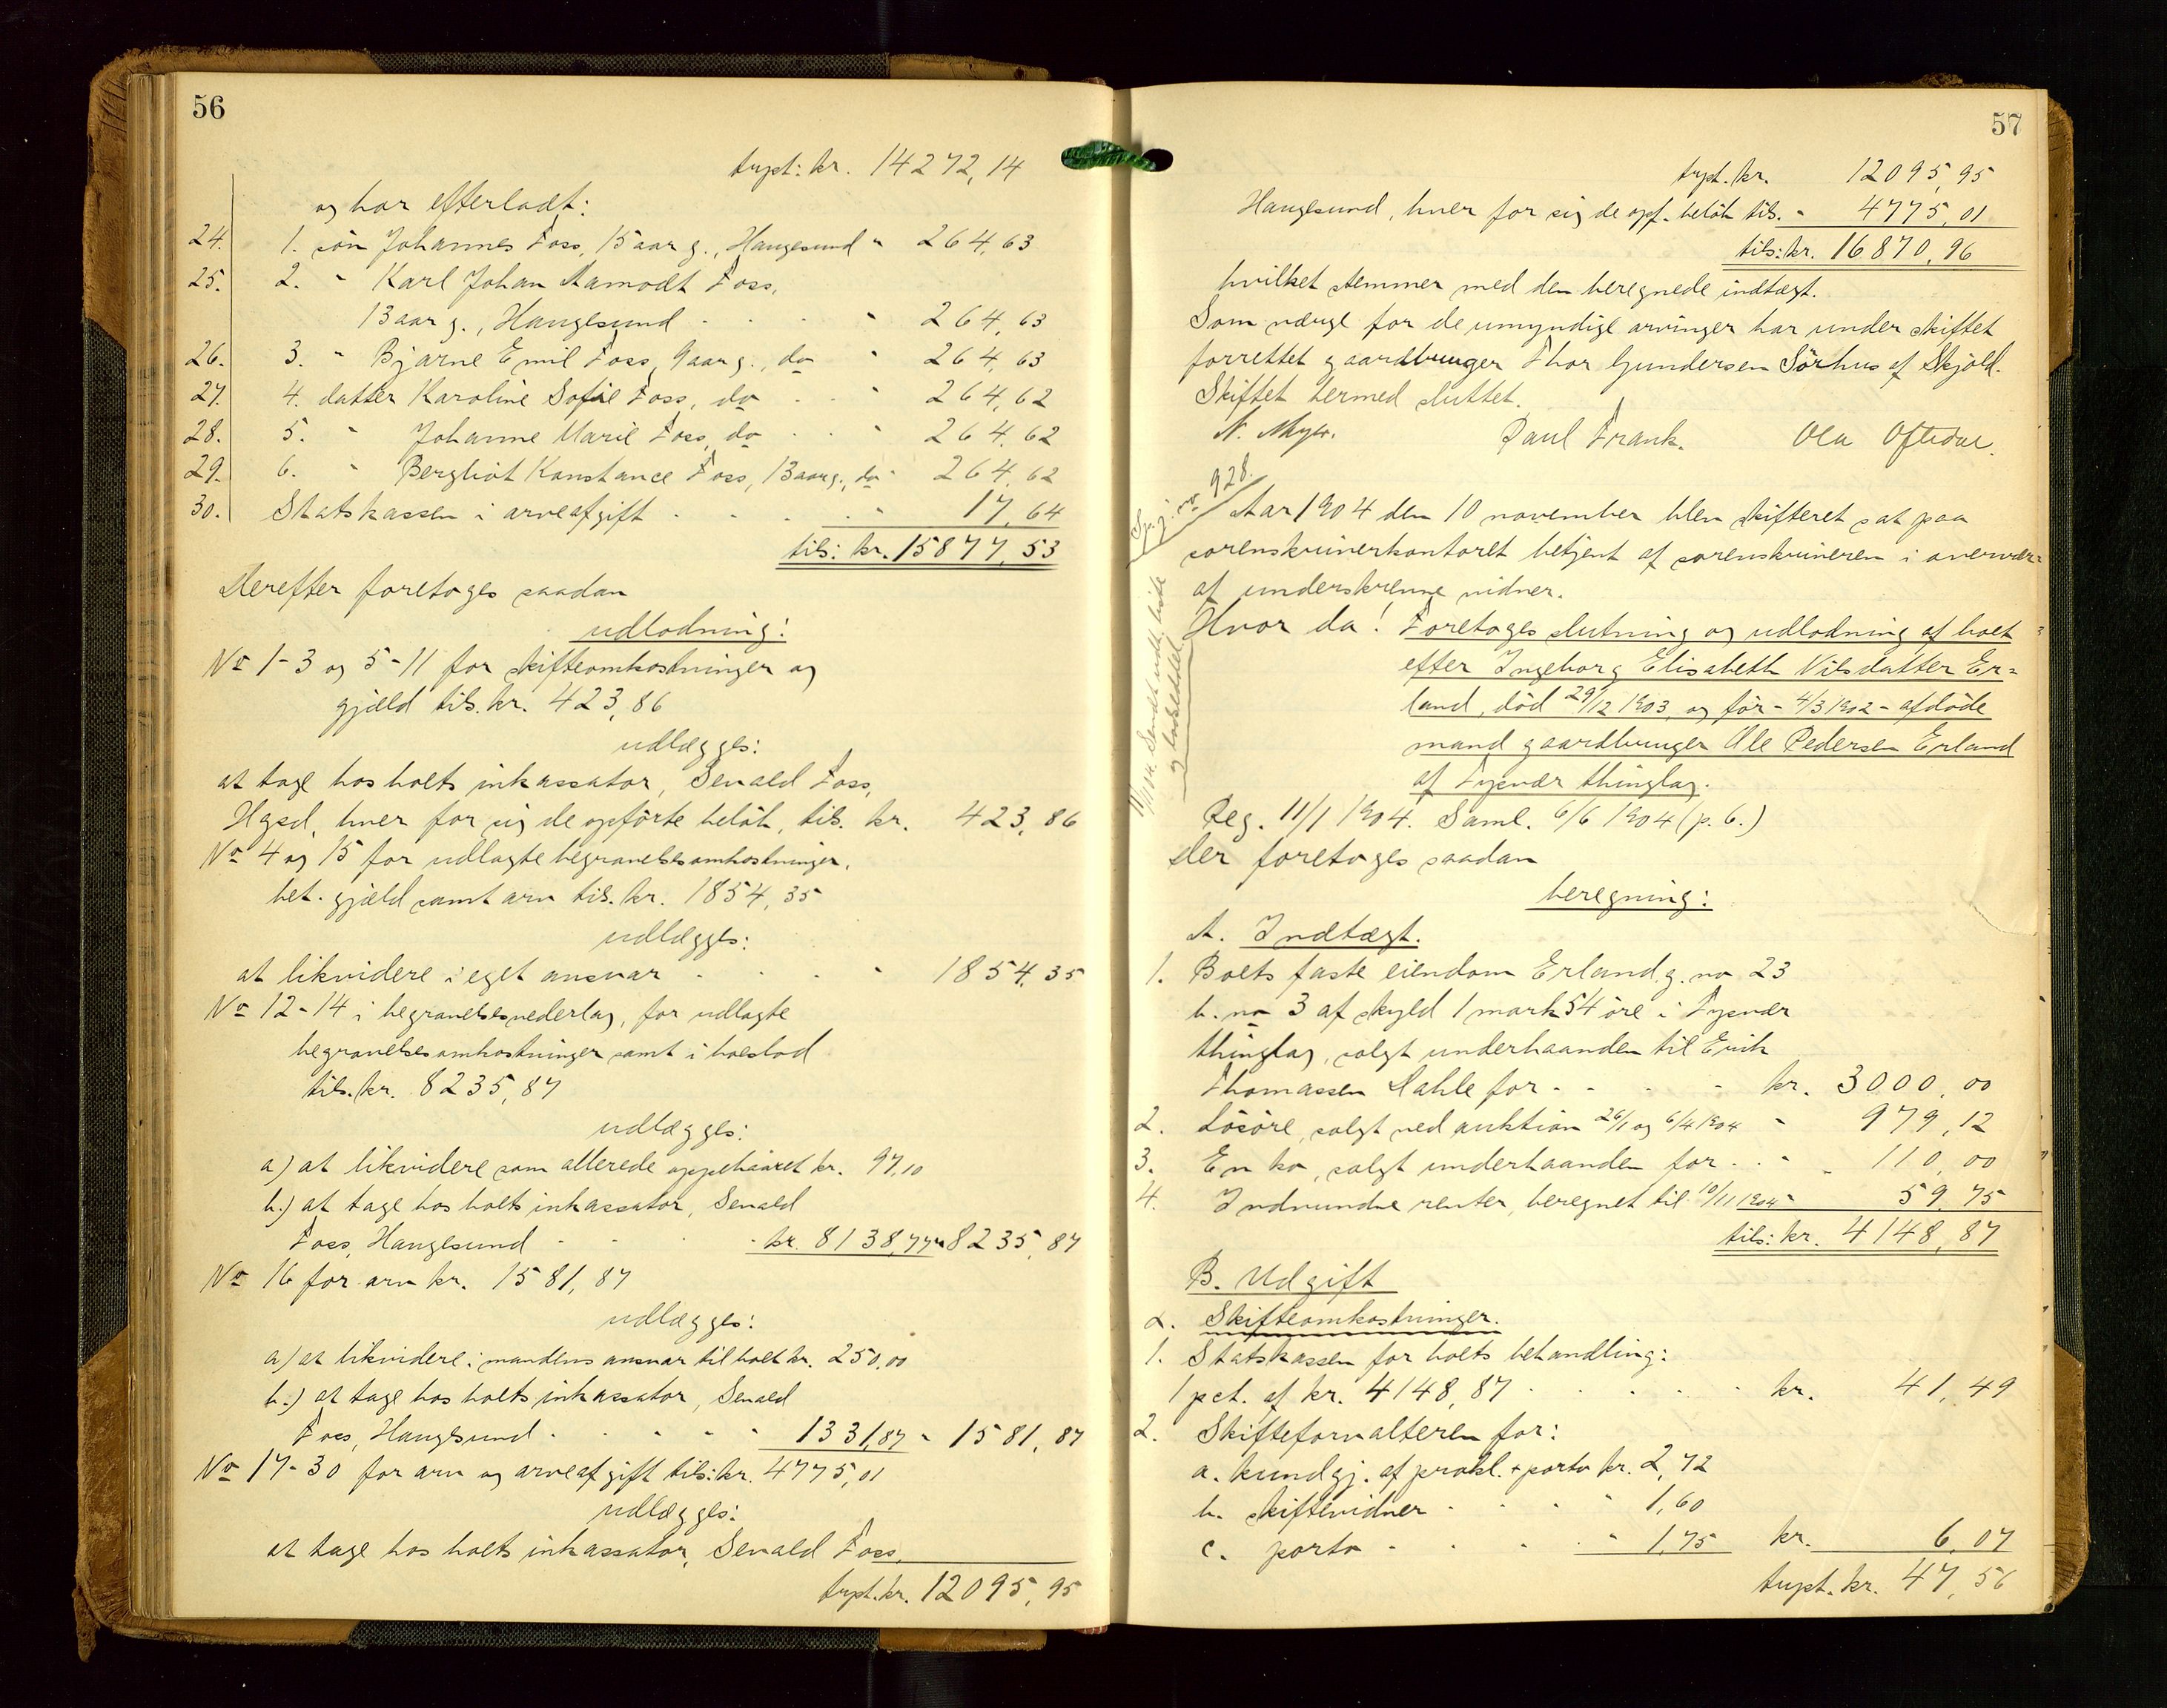 56
trspt: kr. 14272,14
og har efterladt:
24. 1. søn Johannes Foss, 15 aar g., Haugesund " 264,63
25. 2. " Karl Johan Aamodt Foss,
13 aar g., Haugesund - - - " 264,63
26. 3. " Bjarne Emil Foss, 9 aar g., do " 264,63
27. 4. datter Karoline Sofie Foss, do - - " 264,62
28. 5. " Johanne Marie Foss, do - - " 264,62
29. 6. " Bergliot Konstance Foss, 13 aar g., do " 264,62
30. Statskassen i arveafgift - - - " 17,64
tils: kr. 15877,53
Derefter foretoges saadan
udlodning:
No 1-3 og 5-11 for skifteomkostninger og
gjæld tils. kr. 423,86
udlægges:
at tage hos boets inkassator, Sevald Foss,
Hgsd, hver for sig de opførte beløb, tils. kr. 423,86
No 4 og 15 for udlagte begravelsesomkostninger,
bet. gjæld samt arv tils. kr. 1854,35
udlægges:
at likvidere i eget ansvar - - - " 1854,35
No 12-14 i begravelsesvederlag, for udlagte
begravelsesomkostninger samt i boeslod
tils. kr. 8235,87
udlægges:
a) at likvidere som allerede oppebaaret kr. 97,10
b.) at tage hos boets inkassator, Sevald
Foss, Haugesund - - - - kr. 8138,77 " 8235,87
No 16 for arv kr. 1581,87
udlægges:
a) at likvidere i mandens ansvar til boet kr. 250,00
b.) at tage hos boets inkassator, Sevald
Foss, Haugesund - - - - " 1331,87 " 1581,87
No 17-30 for arv og arveafgift tils: kr. 4775,01
udlægges:
at tage hos boets inkassator, Sevald Foss,
trspt. kr. 12095,95
57
trspt. kr. 12095,95
Haugesund, hver for sig de opf. beløb tils. " 4775,01
tils: kr. 16870,96
hvilket stemmer med den beregnede indtægt.
Som værge for de umyndige arvinger har under skiftet
forrettet gaardbruger Thor Gundersen Sørhus af Skjold.
Skiftet hermed sluttet.
Paul Frank. Ola Oftedal.
928.
Aar 1904 den 10 november blev skifteret sat paa
sorenskriverkontoret betjent af sorenskriveren i overvær=
af underskrevne vidner.
Hvor da! Foretoges slutning og udlodning af boet
efter Ingeborg Elisabeth Nilsdatter Er=
land, død 29/12 1903, og før - 4/3 1902 - afdøde
mand gaardbruger Ole Pedersen Erland
af Tysvær thinglag.
Reg. 11/1 1904. Saml. 6/6 1904 (p. 6.)
Der foretoges saadan
beregning:
A. Indtægt.
1. Boets faste eiendom Erland, g. no 23
b. no 3 af skyld 1 mark 54 øre i Tysvær
thinglag, solgt underhaanden til Erik
Thomassen Dahle for - - - - kr. 3000,00
2. Løsøre, solgt ved auktion 26/1 og 6/4 1904 " 979,12
3. En ko, solgt underhaanden for - - " 110,00
4. Indvundne renter, beregnet til 10/11 1904 " 59,75
tils: kr. 4148,87
B. Udgift
α. Skifteomkostninger.
1. Statskassen for boets behandling:
1 pct. af kr. 4148,87 - - - - - kr. 41,49
2. Skifteforvalteren for:
a. kundgj. af prokl. + porto kr. 2,72
b. skiftevidner - - - " 1,60
c. porto - - - - " 1,75 kr. 6,07
trspt. kr. 47,56